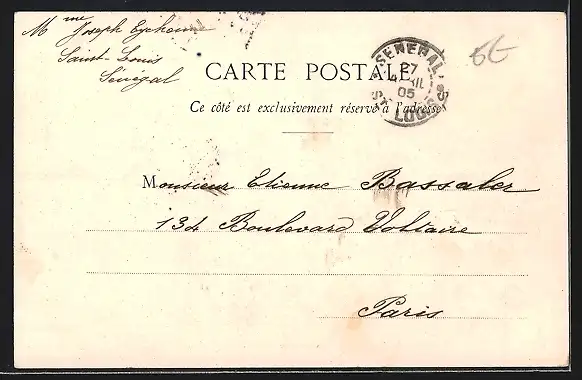 Mme Joseph
Saint-Louis
Sénégal
6E
CARTE POSTALE
SENEGAL
27
05
ST LOUIS
Ce côté est exclusivement réservé à l'adresse
Monsieur Etienne Bassaler
134 Boulevard Voltaire
Paris